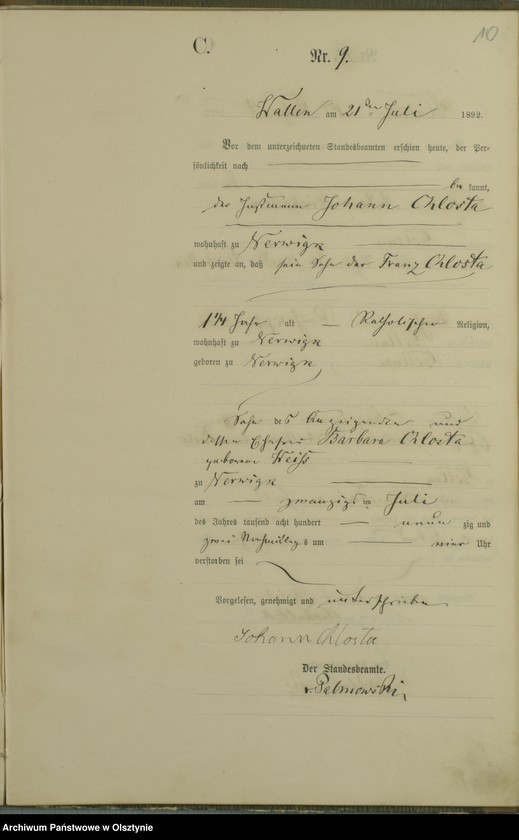 10
C.
Nr. 9.
Wallen am 21ten Juli 1892.
Vor dem unterzeichneten Standesbeamten erschien heute, der Per-
sönlichkeit nach
bekannt,
der Johann Chlosta
wohnhaft zu Nerwigk
und zeigte an, daß sein Sohn der Franz Chlosta
Jahr alt Katholischer Religion,
wohnhaft zu Nerwigk
geboren zu Nerwigk
Sohn des Anzeigenden und
dessen Ehefrau Barbara Chlosta
geborene Weiss
zu Nerwigk
am zwanzigsten Juli
des Jahres tausend acht hundert neun zig und
zwei Nachmittags um vier Uhr
verstorben sei
Vorgelesen, genehmigt und unterschrieben
Johann Chlosta
Der Standesbeamte.
v. Palmowski
Archiwum Państwowe w Olsztynie